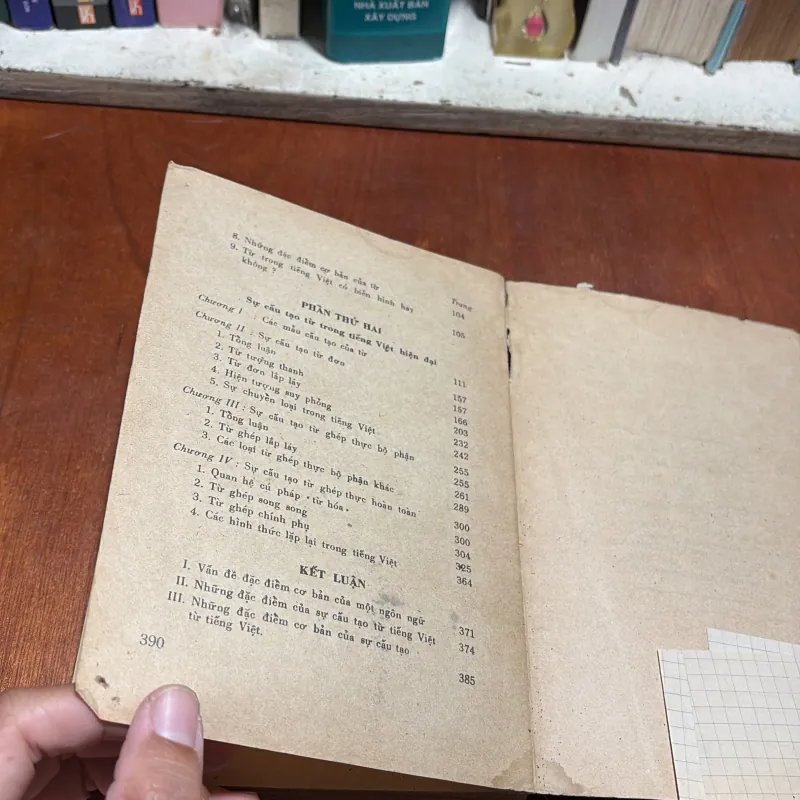 NHÀ XUẤT BẢN
XÂY DỰNG
Trang
8. Những đặc điểm cơ bản của từ 104
9. Từ trong tiếng Việt có biến hình hay
không ? 105
PHẦN THỨ HAI
Sự cấu tạo từ trong tiếng Việt hiện đại
Chương I : Các mẫu cấu tạo của từ 111
Chương II : Sự cấu tạo từ đơn 157
1. Tổng luận 157
2. Từ tượng thanh 166
3. Từ đơn lắp láy 203
4. Hiện tượng suy phỏng 232
5. Sự chuyển loại trong tiếng Việt 242
Chương III : Sự cấu tạo từ ghép thực bộ phận 255
1. Tổng luận 255
2. Từ ghép lắp láy 261
3. Các loại từ ghép thực bộ phận khác 289
Chương IV : Sự cấu tạo từ ghép thực hoàn toàn 300
1. Quan hệ cú pháp «từ hóa» 300
2. Từ ghép song song 304
3. Từ ghép chính phụ 325
4. Các hình thức lặp lại trong tiếng Việt 364
KẾT LUẬN
I. Vấn đề đặc điểm cơ bản của một ngôn ngữ 371
II. Những đặc điểm của sự cấu tạo từ tiếng Việt 374
III. Những đặc điểm cơ bản của sự cấu tạo
từ tiếng Việt. 385
390